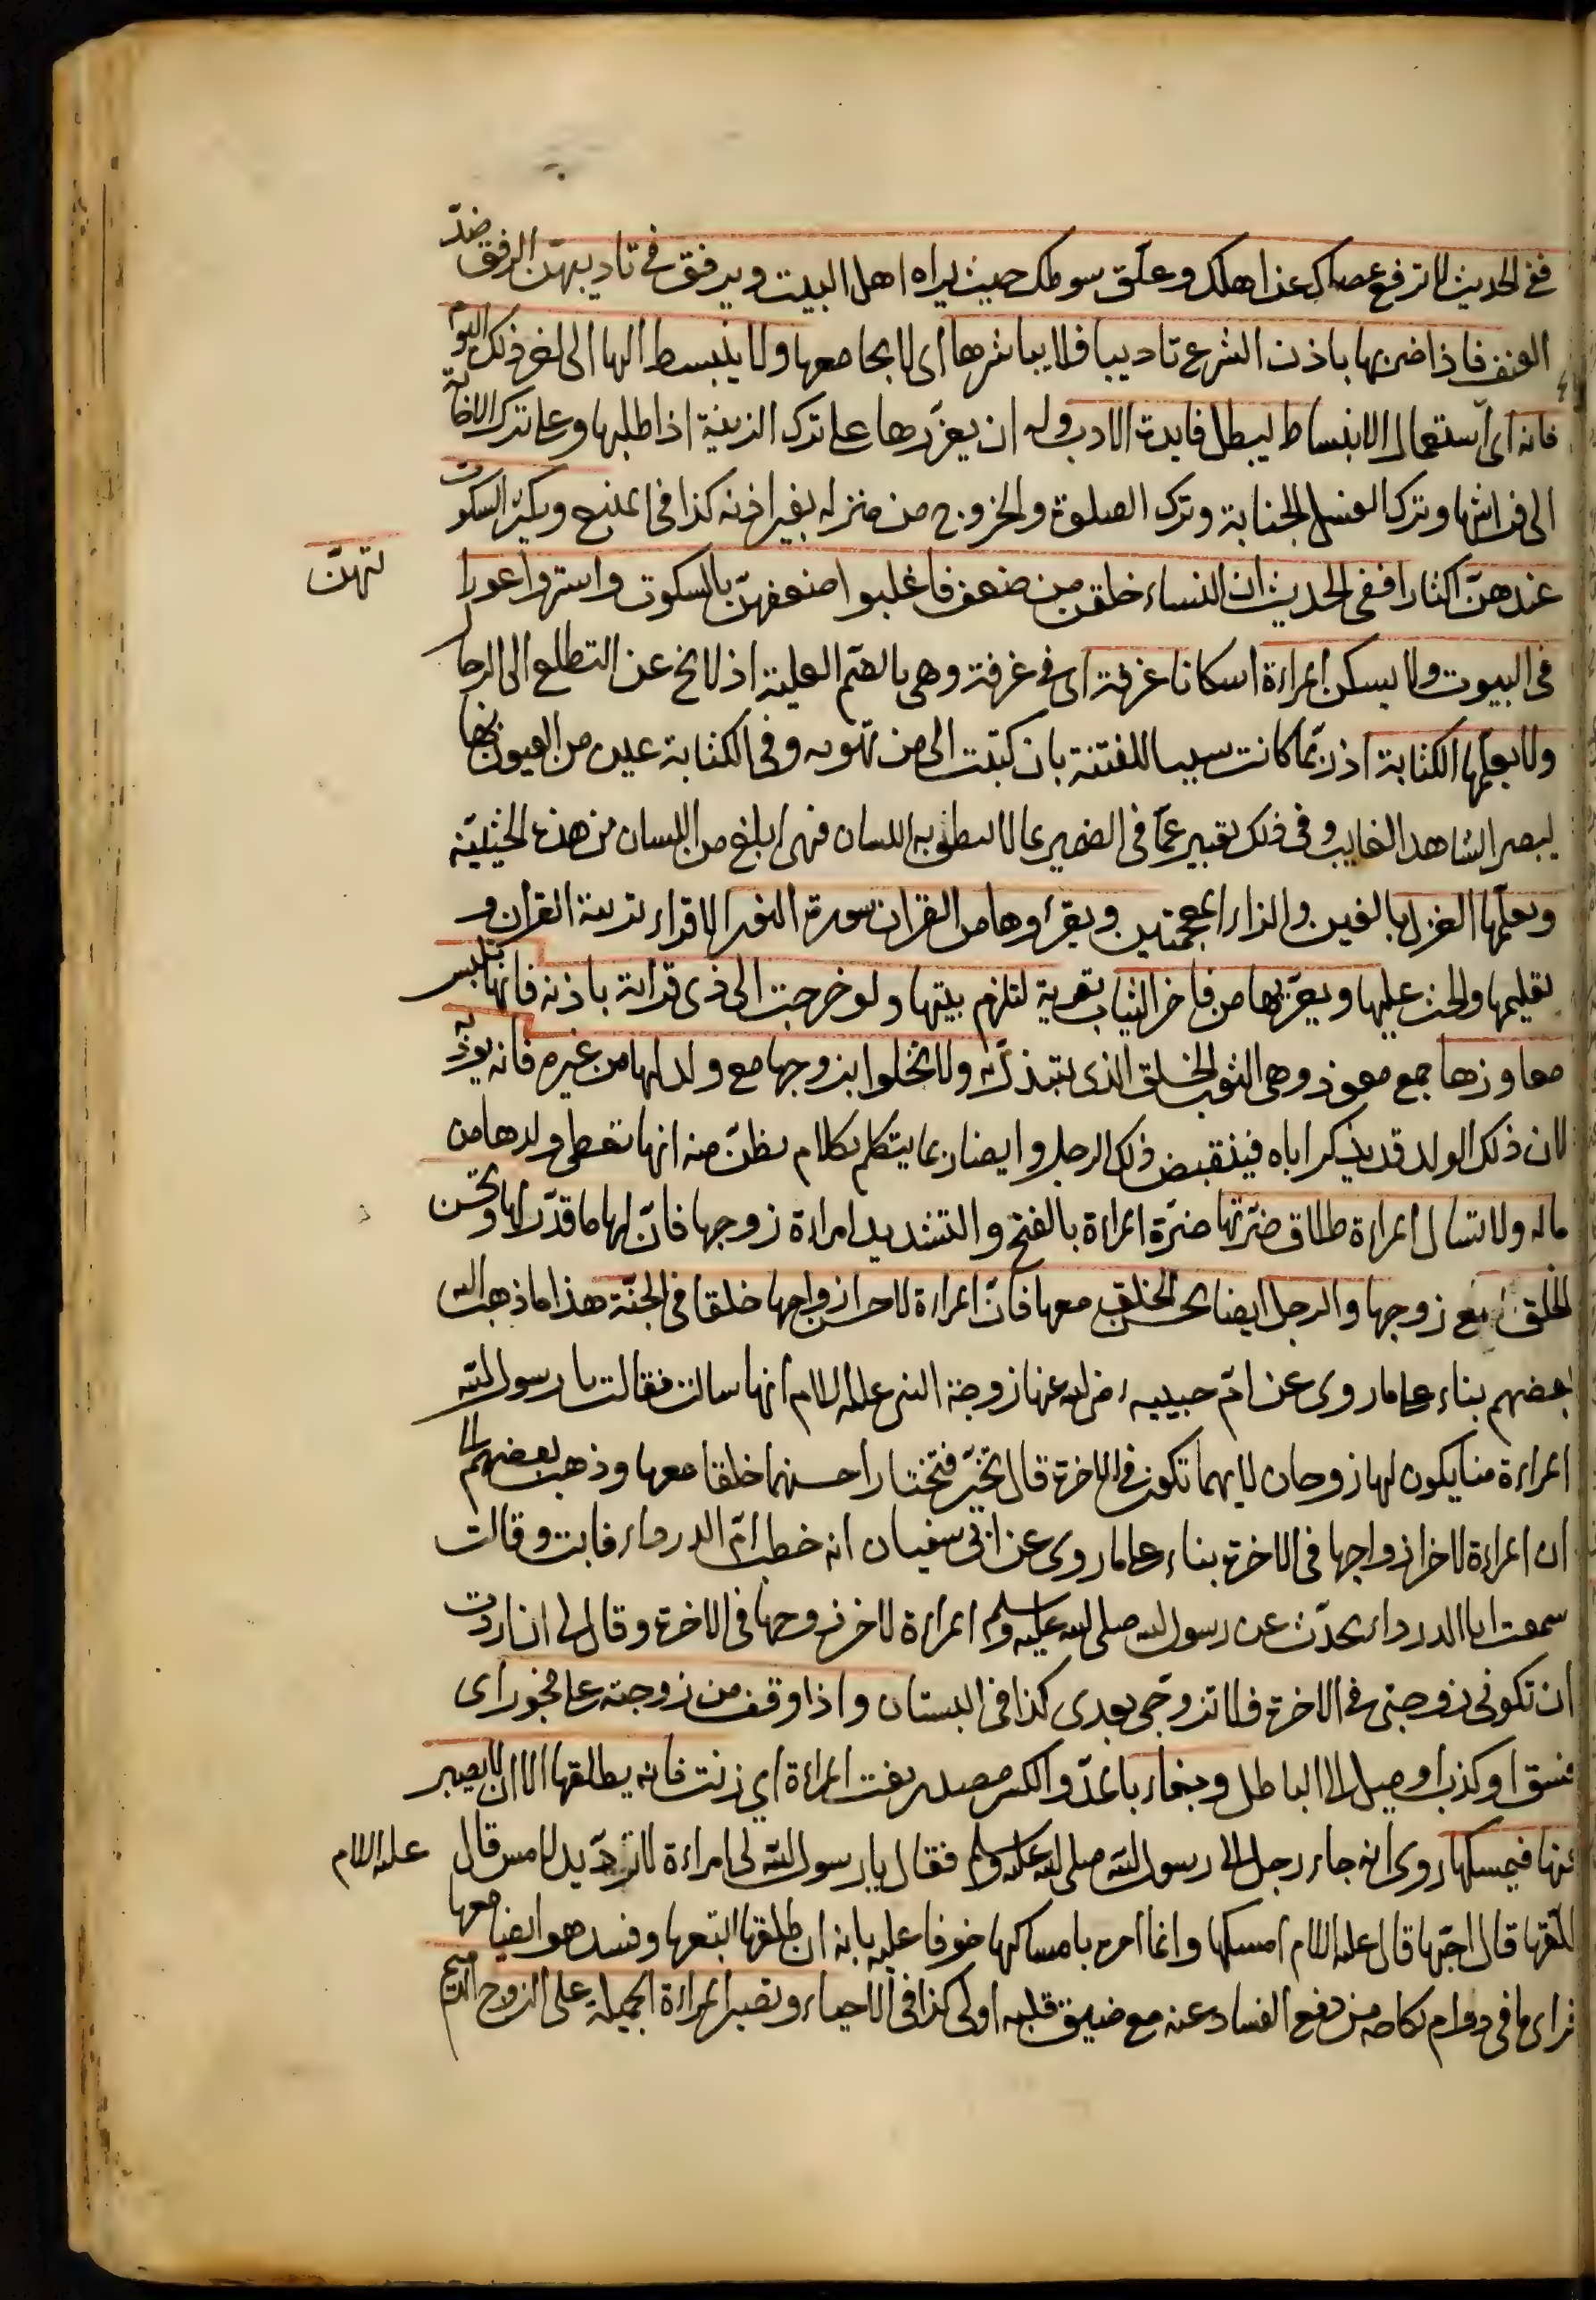 ففى الحديث لا ترفع عصاك عن اهلك وعلّق سوطك حيث يراه اهل البيت ويرفق فى تاديبهنّ الرفق ضدّ
العنف فاذا ضربها باذن الشرع تاديبا فلا يباشرها اى لا يجامعها ولا ينبسط اليها الى اخر ذلك اليوم
فانه اى استعمال الانبساط يبطل فايدة الادب وله ان يعزّرها على ترك الزينة اذا طلبها وعلى ترك الاجابة
الى فراشها وترك الغسل الجنابة وترك الصلوة والخروج من منزله بغير اذنه كذا فى المنبع ويكثر السكوت
عندهنّ اكثارا ففى الحديث ان النساء خلقن من ضعف فاغلبوا ضعفهنّ بالسكوت واستروا عورا
تهنّ
فى البيوت ولا يسكن المراءة اسكانا غرفة اى فى غرفة وهى بالضم العلية اذ لا يخ عن التطلع الى الرجا
ولا يعلمها الكتابة اذ ربّما كانت سببا للفتنة بان كتبت الى من تهويه وفى الكتابة عين من العيون بها
يبصر الشاهد الغايب وفى ذلك تعبير عمّا فى الضمير بما لا ينطق به اللسان فهى ابلغ من اللسان من هذه الحيثيّة
ويعلّمها الغزل بالغين والزاء المعجمتين ويقرؤها من القران سورة النور الاقراء تدريسة القران و
تعليمها والحث عليها ويعرّيها من فاخر الثياب تعرية لتلزم بيتها ولو خرجت الى ذى قرابة باذنه فانها تلبس
معاوزها جمع معوز وهى الثوب الخلق الذى يتبذّل به ولا تخلوا بزوجها مع ولد لها من غيره فانه يؤذيه
لان ذلك الولد قد يذكر اباه فينقبض ذلك الرجل وايضا ربما يتكلم بكلام يظنّ منه انها تعطى ولدها من
ماله ولا تسال المراءة طلاق ضرّتها ضرّة المراءة بالفتح والتشديد امراءة زوجها فانّ لها ما قدّر لها وتحسن
الخلق مع زوجها والرجل ايضا يحسن الخلق معها فانّ المراءة لاحسن ازواجها خلقا فى الجنّة هذا ما ذهب اليه
بعضهم بناء على ما روى عن امّ حبيبة رضى الله عنها زوجة النبى عليه السلام انها سالت فقالت يا رسول الله
المراءة منا يكون لها زوجان لايهما تكون فى الاخرة قال تخيّر فتختار احسنهما خلقا معها وذهب بعضهم الى
ان المراءة لاخر ازواجها فى الاخرة بناء على ما روى عن ابى سفيان انه خطب امّ الدرداء فابت وقالت
سمعت ابا الدرداء يحدّث عن رسول الله صلى الله عليه وسلم المراءة لاخر زوجها فى الاخرة وقال لى ان اردت
ان تكونى زوجتى فى الاخرة فلا تزوجى بعدى كذا فى البستان واذا وقف من زوجته على فجور اى
فسق او كذب او ميل الى الباطل وبغاء بالمدّ والكسر مصدر بغت المراءة اى زنت فانه يطلقها الا ان لا يصبر
عنها فيمسكها روى انه جاء رجل الى رسول الله صلى الله عليه وسلم فقال يا رسول الله لى امراءة لا تردّ يد لامس قال
عليه السلام
طلّقها قال احبّها قال عليه السلام امسكها وانما امره بامساكها خوفا عليه بانه ان طلقها اتبعها وفسد هو ايضا معها
فراى ما فى دوام نكاحه من دفع الفساد عنه مع ضيق قلبه اولى كذا فى الاحياء وتصبر المراءة الجميلة على الزوج الدميم